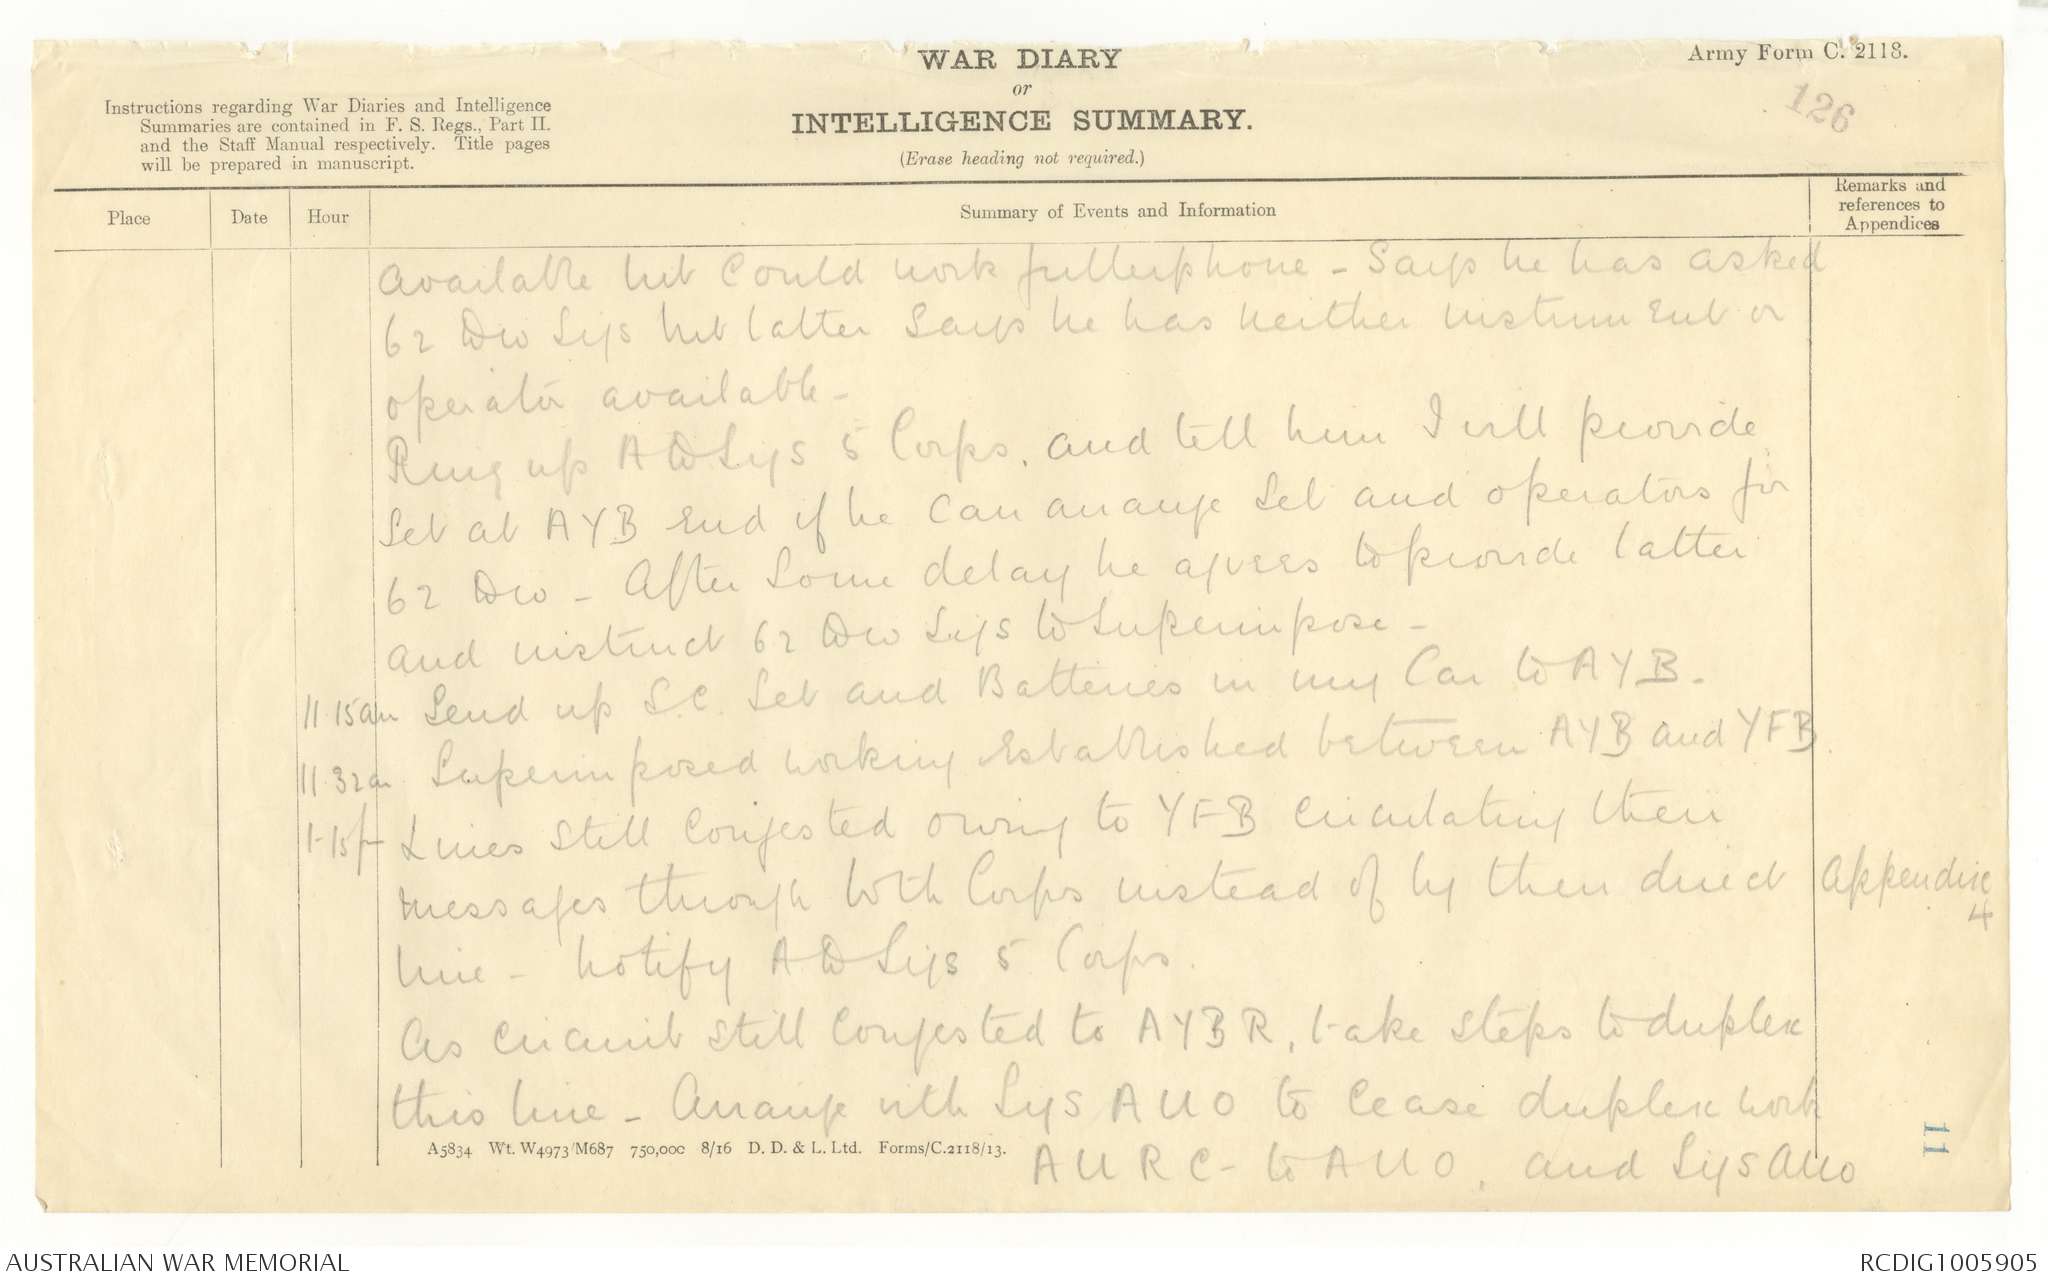 WAR DIARY
or
INTELLIGENCE SUMMARY.
(Erase heading not required.)
Army Form C. 2118.
126
Instructions regarding War Diaries and Intelligence
Summaries are contained in F. S. Regs., Part II.
and the Staff Manual respectively. Title pages
will be prepared in manuscript.
Place Date Hour Summary of Events and Information Remarks and references to Appendices
available but could work fullerphone - Says he has asked
62 Div Sigs but latter says he has neither instrument or
operator available -
Ring up A D Sigs 5 Corps, and tell him I will provide
Set at AYB end if he can arrange Set and operators for
62 Div - After some delay he agrees to provide latter
and instruct 62 Div Sigs to superimpose -
11.15am Send up S.C. Set and Batteries in my Car to AYB.
11.32am Superimposed working established between AYB and YFB.
1-15p Lines still congested owing to YFB circulating their
messages through both Corps instead of by their direct Appendix
4
line - Notify A D Sigs 5 Corps.
As circuit still congested to AYBR, take steps to duplex
this line - Arrange with Sigs AUO to cease duplex work
AURC - to AUO, and Sigs AUO
A5834 Wt. W4973/M687 750,000 8/16 D. D. & L. Ltd. Forms/C.2118/13.
11
AUSTRALIAN WAR MEMORIAL
RCDIG1005905